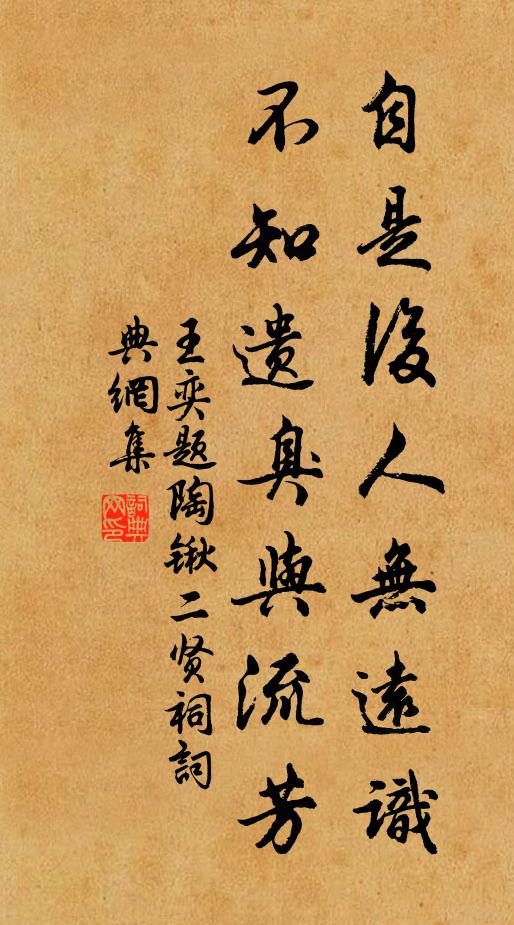 自是後人無遠識
不知遺臭與流芳
王奕題陶锹二贤祠詞
典網集
詞典網印